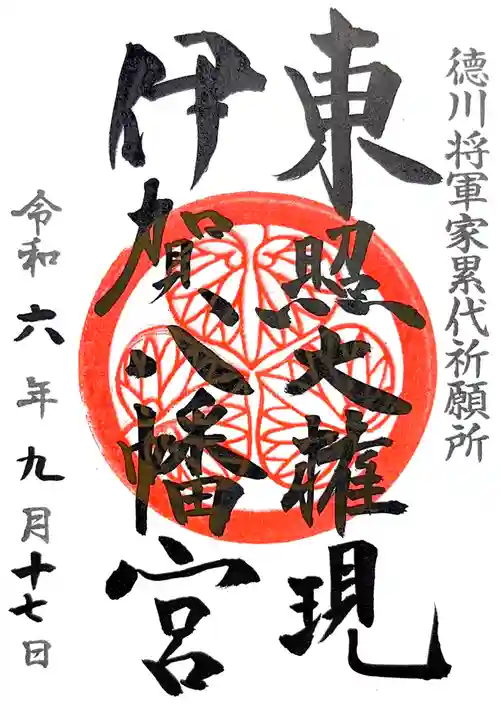 徳川将軍家累代祈願所
東照大権現
伊賀八幡宮
令和六年九月十七日